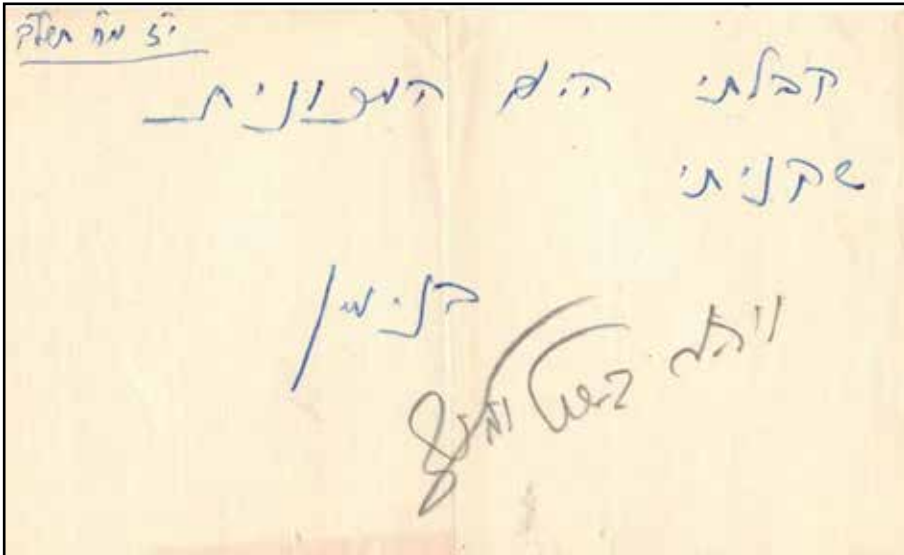 י"ז מ"ח תשל"ב
קבלתי היום המכונית
שקניתי
בנימין
ויהא